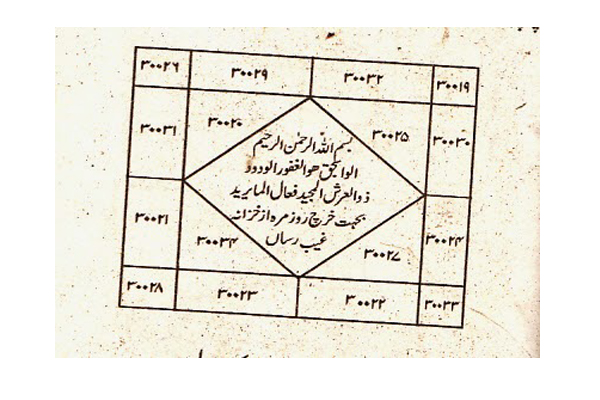 ۳۰۰۱۹ ۳۰۰۳۲ ۳۰۰۲۹ ۳۰۰۲۶
۳۰۰۳۰ ۳۰۰۲۵ ۳۰۰۲۰ ۳۰۰۳۱
بسم اللہ الرحمن الرحیم
الوالحق ھوالغفور الودود
ذوالعرش المجید فعال المایرید
بجہت خرچ روزمرہ از خزانہ
غیب رساں
۳۰۰۲۴ ۳۰۰۲۷ ۳۰۰۳۴ ۳۰۰۲۱
۳۰۰۳۳ ۳۰۰۲۲ ۳۰۰۲۳ ۳۰۰۲۸